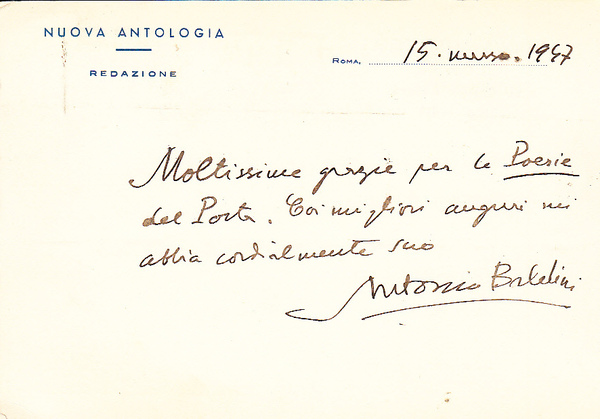 NUOVA ANTOLOGIA
REDAZIONE
ROMA, 15. marzo. 1947
Moltissime grazie per le Poesie
del Porta. Coi migliori auguri mi
abbia cordialmente suo
Antonio Baldini